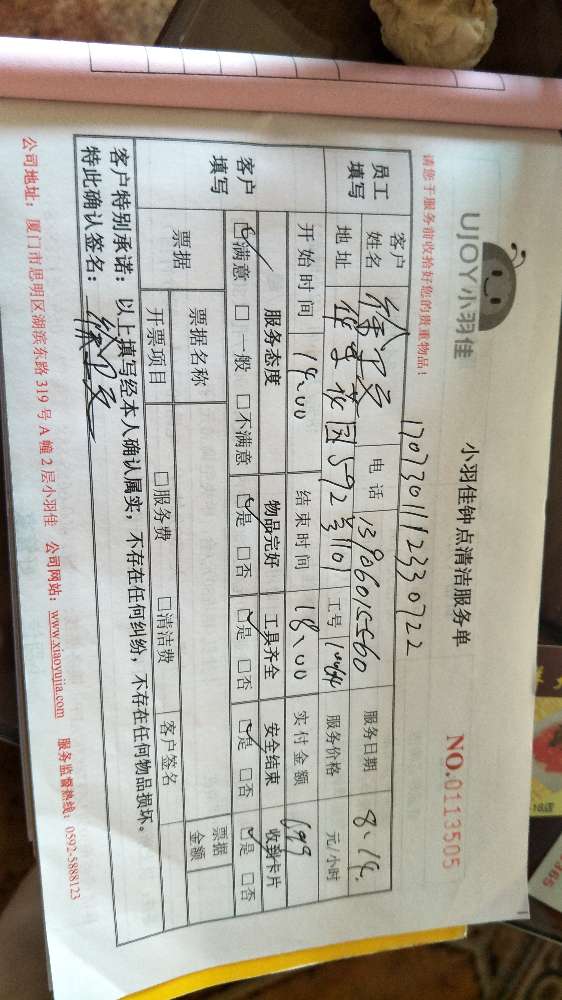 UJOY小羽佳
小羽佳钟点清洁服务单
NO.0113505
请您于服务前收拾好您的贵重物品！
1707301112330722
员工填写 客户姓名 电话 服务日期 8.14.
地址 592号101 工号 服务价格 元/小时
开始时间 14:00 结束时间 18:00 实付金额
客户填写 服务态度 物品完好 工具齐全 安全结束 收到卡片
☑满意 □一般 □不满意 ☑是 □否 ☑是 □否 ☑是 □否 ☑是 □否
票据 票据名称 票据金额
开票项目 □服务费 □清洁费 客户签名
客户特别承诺：以上填写经本人确认属实，不存在任何纠纷，不存在任何物品损坏。
特此确认签名：
公司地址：厦门市思明区湖滨东路319号A幢2层小羽佳 公司网站：www.xiaoyujia.com 服务监督热线：0592-5888123